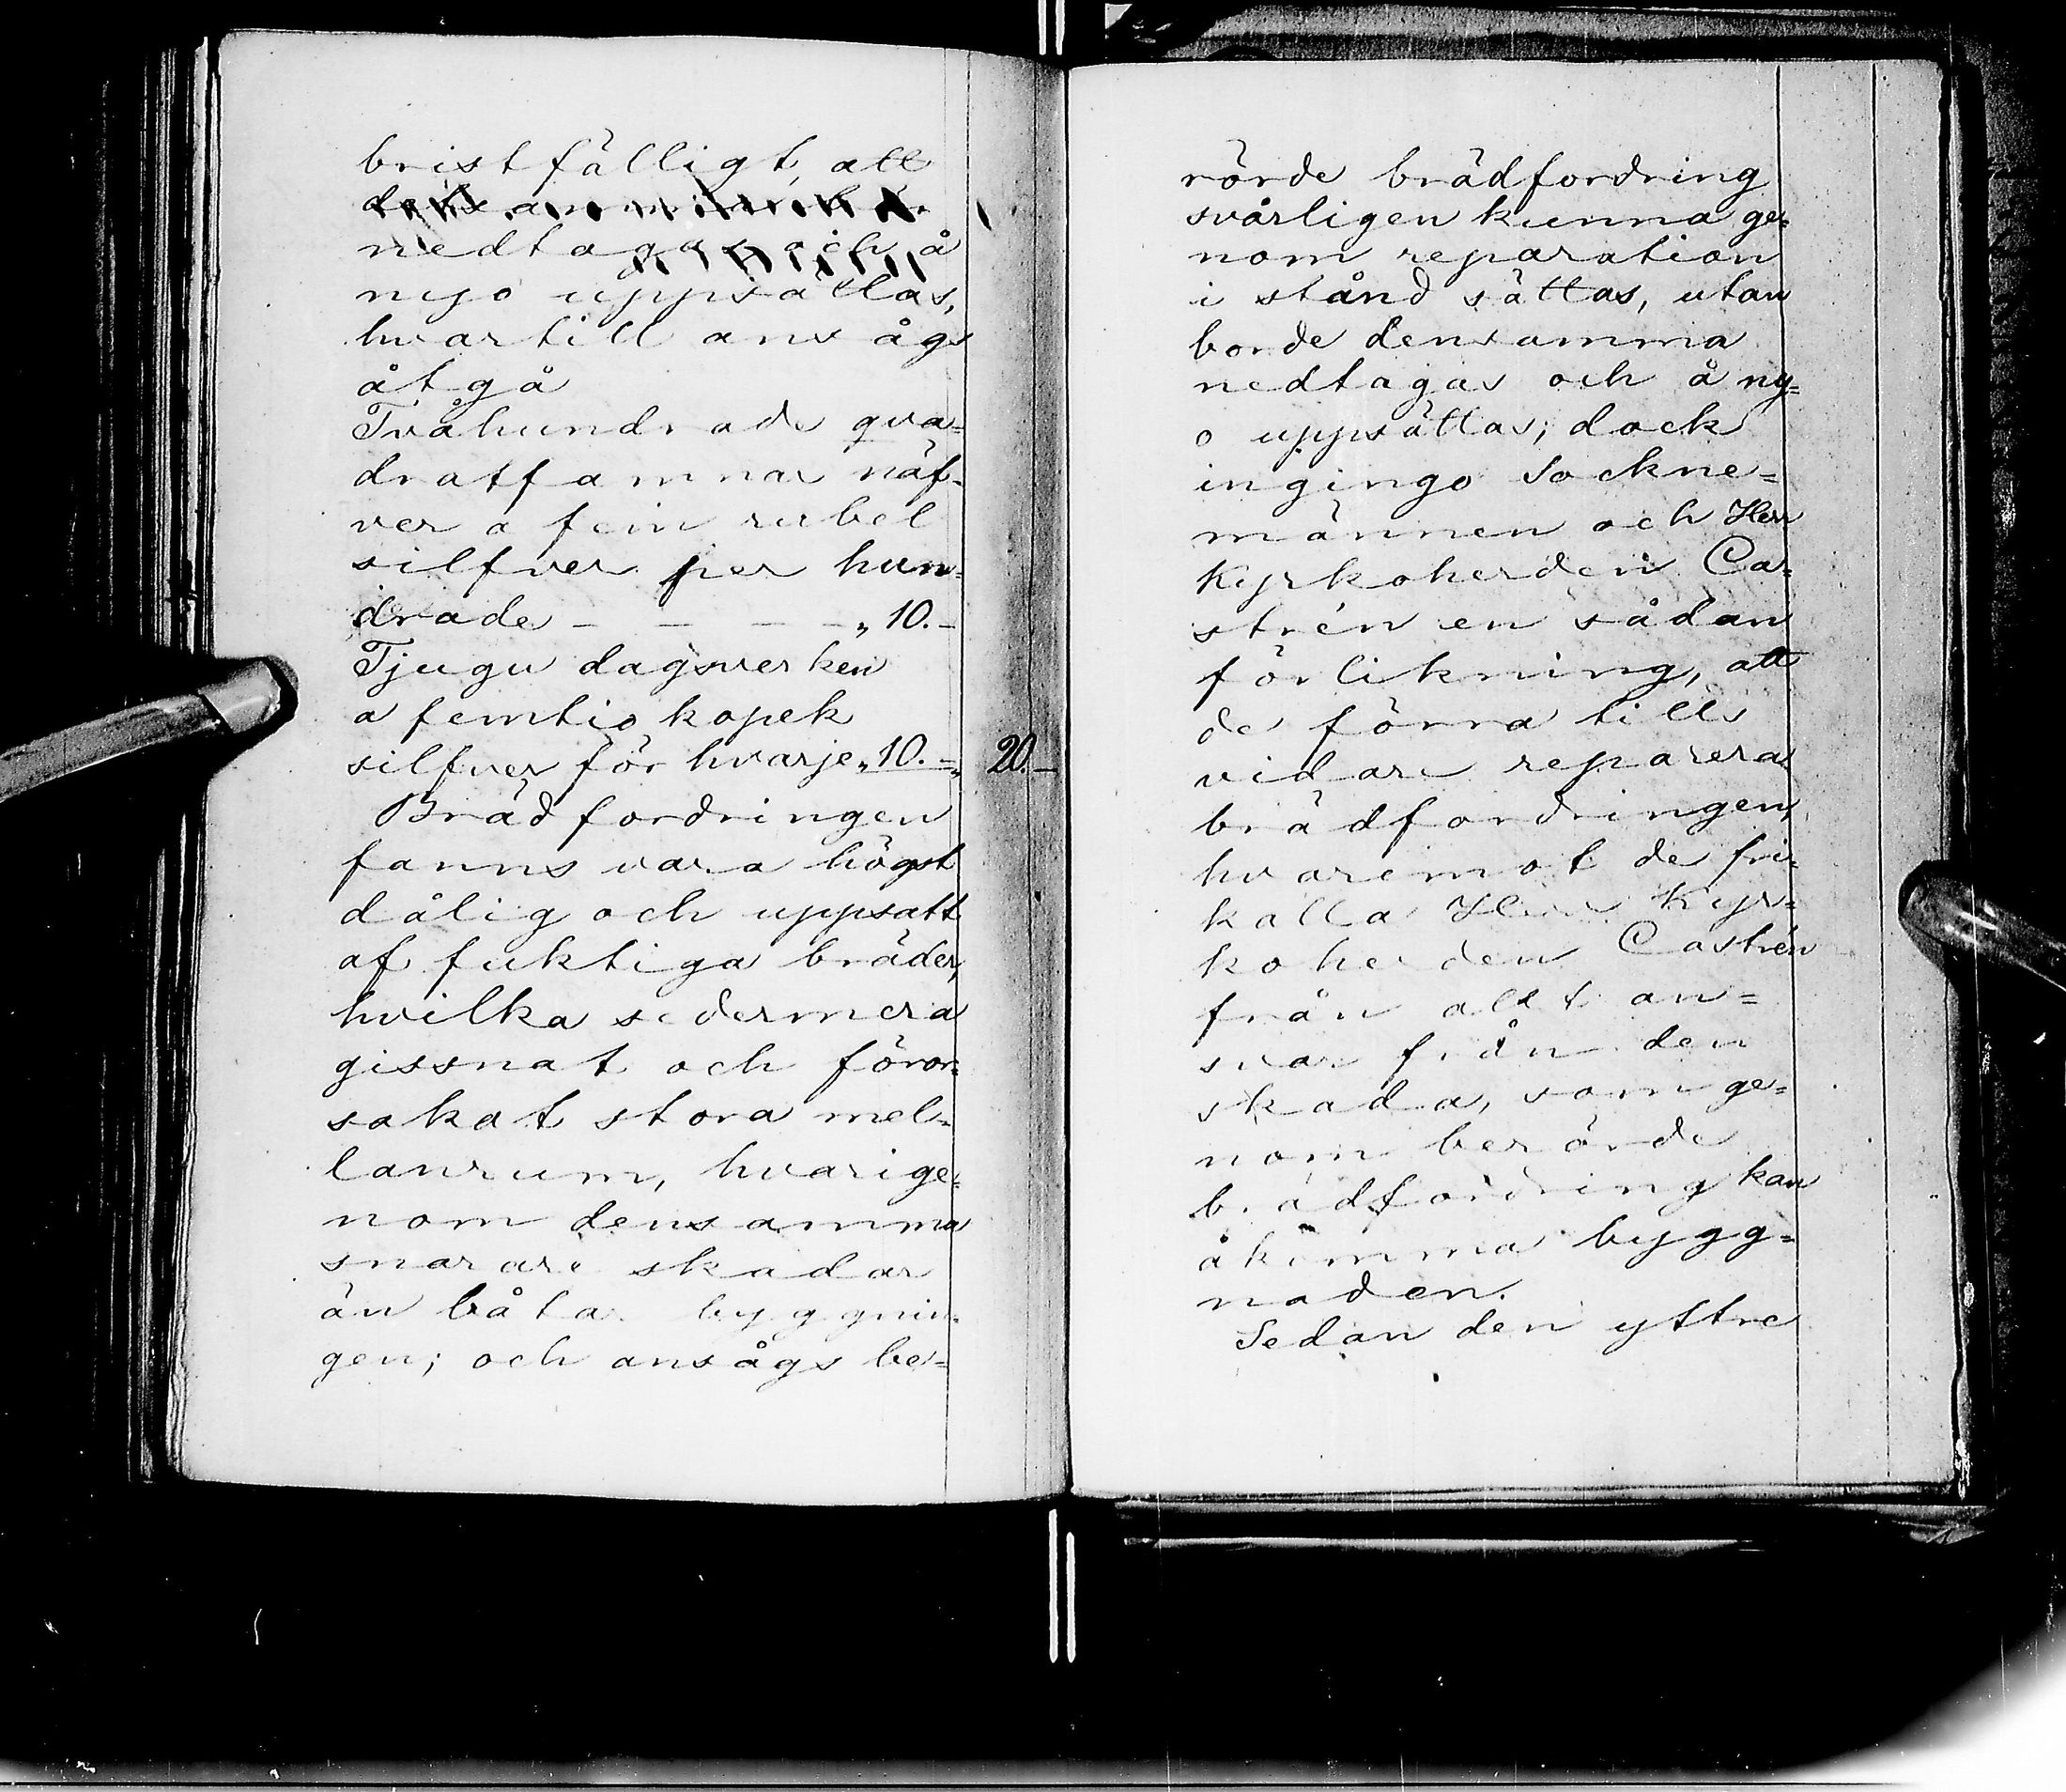 bristfälligt, att
nedtagas och å
nyo uppsättas,
hvartill ansågs
åtgå
Tvåhundrade qva=
dratfamnar näf-
ver a fem rubel
silfver per hun=
drade - - - - „ 10. -
Tjugu dagsverken
a femtio kopek
silfver för hvarje „ 10. = „ 20. -
Brädfordringen
fanns vara högst
dålig och uppsatt
af fuktiga bräder,
hvilka sedermera
gissnat och föror=
sakat stora mel=
lanrum, hvarige=
nom densamma
snarare skadar
än båtar byggnin=
gen; och ansågs be=
rörde brädfordring
svårligen kunna ge=
nom reparation
i stånd sättas, utan
borde densamma
nedtagas och å ny=
o uppsättas; dock
ingingo Sockne=
männen och Herr
Kyrkoherden Ca=
strén en sådan
förlikning, att
de förra tills
vidare reparera
brädfordringen,
hvaremot de fri=
kalla Herr Kyr=
koherden Castrén
från allt an=
svar från den
skada, som ge=
nom berörde
brädfordring kan
åkomma bygg=
naden.
Sedan den yttre